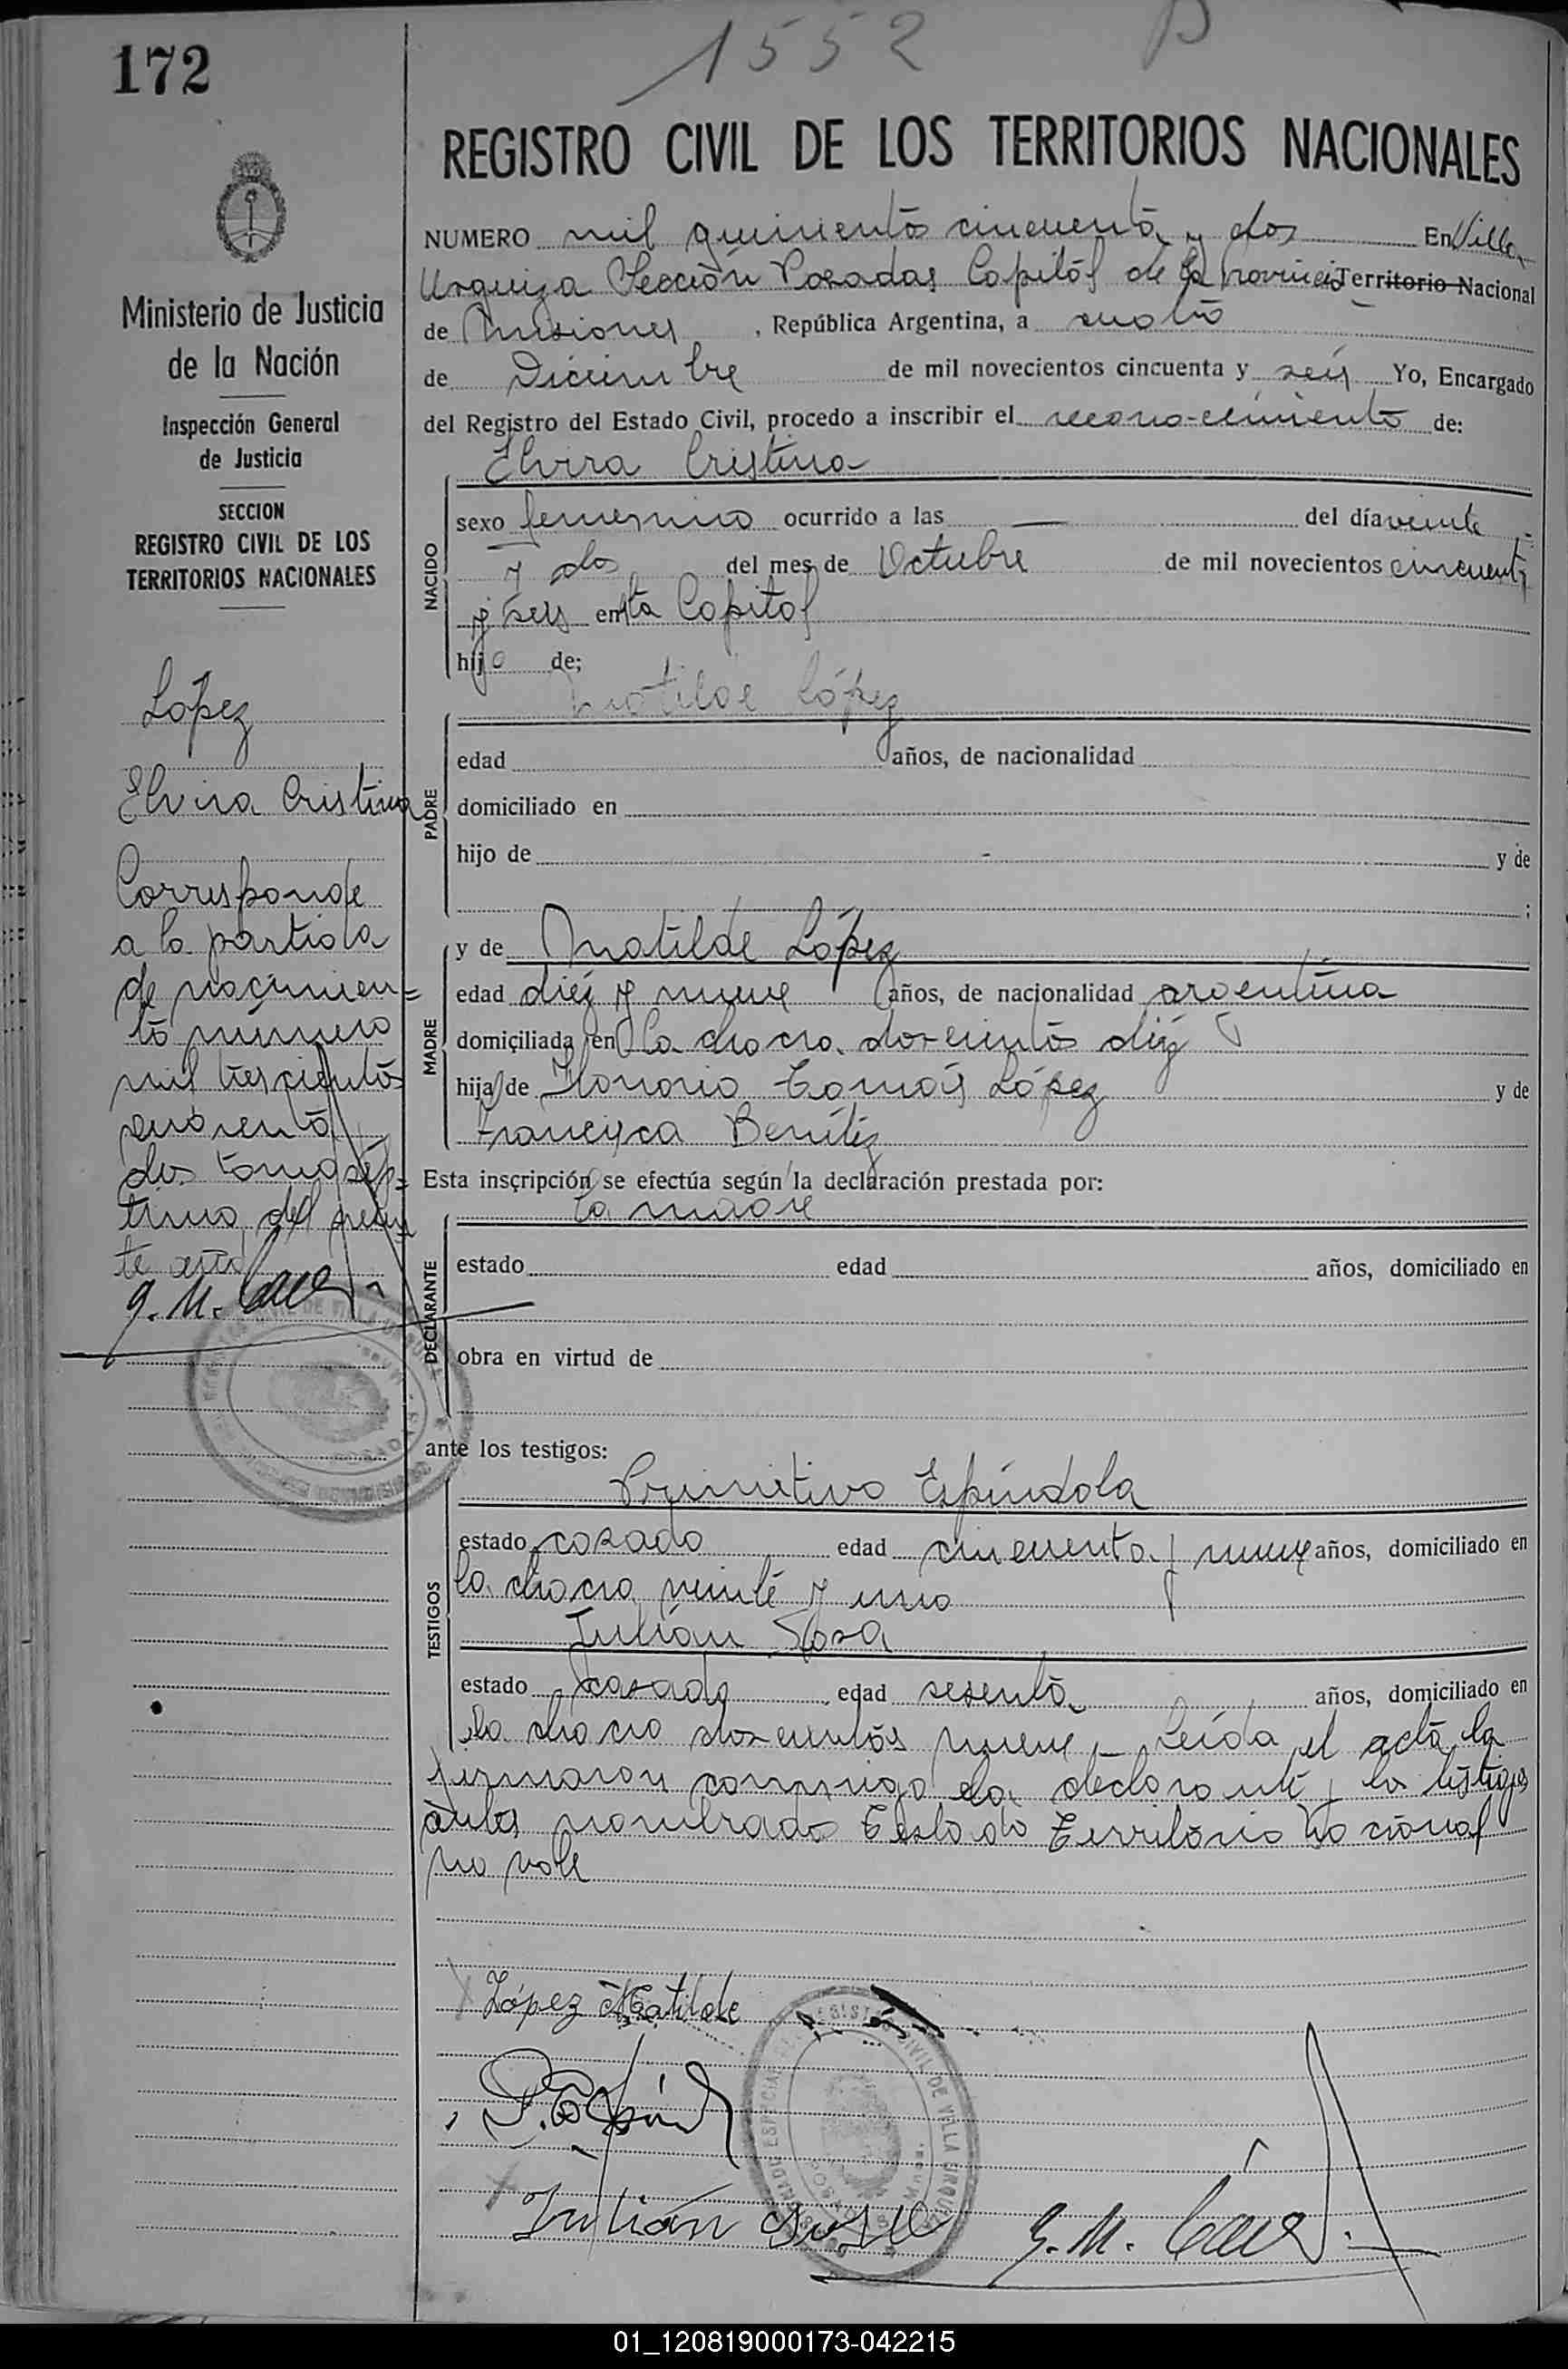 172
1552
REGISTRO CIVIL DE LOS TERRITORIOS NACIONALES
Ministerio de Justicia
de la Nación
Inspección General
de Justicia
SECCION
REGISTRO CIVIL DE LOS
TERRITORIOS NACIONALES
López
Elvira Cristina
Corresponde
a la partida
de nacimien=
to número
mil trescientos
cuarenta
dos tomo sép=
timo del presen
te año
NUMERO mil quinientos cincuenta y dos En Villa
Urquiza Sección Posadas Capitál de la Provincia Territorio Nacional
de Misiones, República Argentina, a cuatro
de Diciembre de mil novecientos cincuenta y seis Yo, Encargado
del Registro del Estado Civil, procedo a inscribir el recono-cimiento de:
Elvira Cristina
NACIDO
sexo femenino ocurrido a las — del día veinte
y dos del mes de Octubre de mil novecientos cincuenta
y seis en esta Capital
hija de;
Matilde López
PADRE
edad años, de nacionalidad
domiciliado en
hijo de y de
;
MADRE
y de Matilde López
edad diéz y nueve años, de nacionalidad argentina
domiciliada en la chacra doscientos diéz
hija de Honorio Tomás López y de
Francisca Benítez
Esta inscripción se efectúa según la declaración prestada por:
la madre
DECLARANTE
estado edad años, domiciliado en
obra en virtud de
ante los testigos:
TESTIGOS
Primitivo Espíndola
estado casado edad cincuenta y nueve años, domiciliado en
la chacra veinte y uno
Julián Sosa
estado casado edad sesenta años, domiciliado en
la chacra doscientos nueve – Leída el acta la
firmaron conmigo la declarante y los testigos
antes nombrados Testado Territorio Nacional
no vale
López Matilde
Julián Sosa
01_120819000173-042215